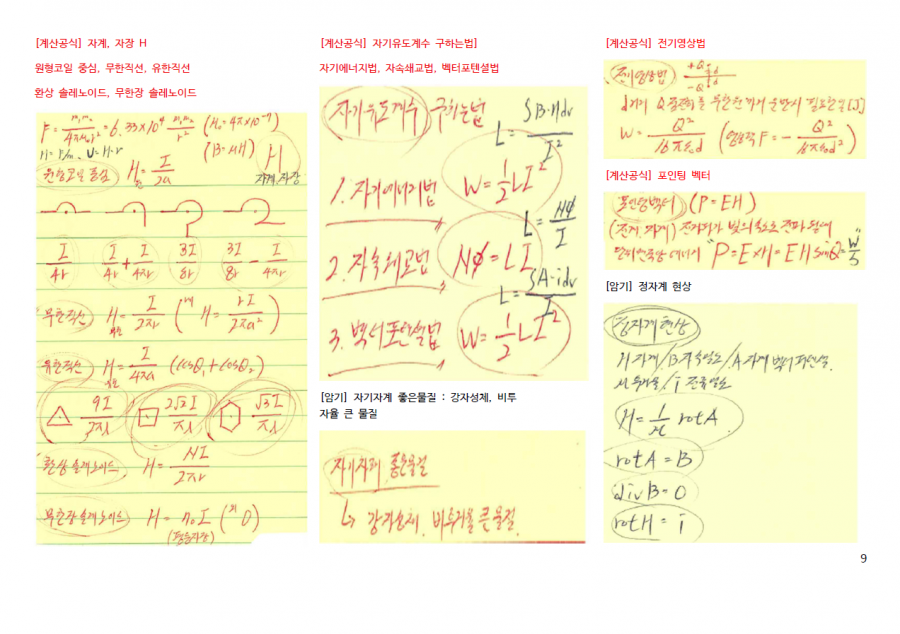 [계산공식] 자계, 자장 H
원형코일 중심, 무한직선, 유한직선
환상 솔레노이드, 무한장 솔레노이드
F = m₁m₂/4πμ₀r² = 6.33×10⁴ m₁m₂/r² (μ₀=4π×10⁻⁷)
H = F/m, U = H·r (B=μH) H
원형코일 중심 H = I/2a 자계, 자장
I/4r I/4r + I/4πr 3I/8r 3I/8r - I/4πr
무한직선 H = I/2πr (내 H = rI/2πa²)
유한직선 H = I/4πa (cosθ₁+cosθ₂)
△ 9I/2πl □ 2√2I/πl √3I/πl
환상솔레노이드 H = NI/2πr
무한장솔레노이드 H = n₀I (외 0)
(평등자장)
[계산공식] 자기유도계수 구하는법]
자기에너지법, 자속쇄교법, 벡터포텐셜법
자기유도계수 구하는법 L = ∫B·Hdv/I²
1. 자기에너지법 W = ½LI²
L = Nφ/I
2. 자속쇄교법 Nφ = LI
L = ∫A·idv/I²
3. 벡터포텐셜법 W = ½LI²
[암기] 자기자계 좋은물질 : 강자성체, 비투
자율 큰 물질
자기차폐 좋은물질
↳ 강자성체, 비투자율 큰 물질
[계산공식] 전기영상법
전기영상법 +Q d
-Q d
d에서 Q 점전하를 무한원까지 운반시 필요한 일[J]
W = Q²/16πε₀d (영상력 F = - Q²/16πε₀d²)
[계산공식] 포인팅 벡터
포인팅벡터 (P = EH)
(전계, 자계) 전자파가 빛의 속도로 전파될때
단위면적당 에너지 "P = E×H = EH sinθ = W/S"
[암기] 정자계 현상
정자계 현상
H 자계 / B 자속밀도 / A 자계 벡터 퍼텐셜
μ 투자율 / i 전류밀도
H = 1/μ rot A
rot A = B
div B = 0
rot H = i
9